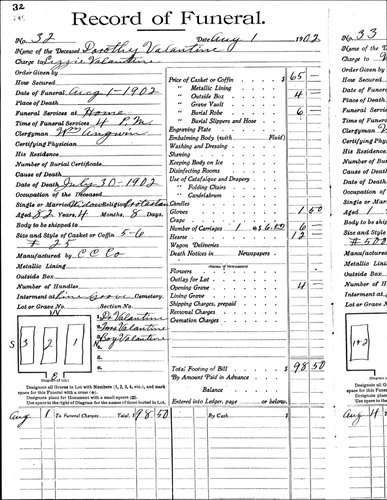 32
Record of Funeral.
No. 32 Date Aug 1 1902
Name of the Deceased Dorothy Valantine
Charge to Lizzie Valantine
Order Given by
How Secured
Date of Funeral Aug 1-1902
Place of Death
Funeral Services at Home
Time of Funeral Services 4 P.M.
Clergyman Wm Angwin
Certifying Physician
His Residence
Number of Burial Certificate
Cause of Death
Date of Death July 30-1902
Occupation of the Deceased
Single or Married Widow Religion Protestan
Aged 82 Years, 4 Months, 8 Days
Body to be shipped to
Size and Style of Casket or Coffin 5-6
# 25
Manufactured by C C Co
Metallic Lining
Outside Box
Number of Handles
Interment at Lime Grove Cemetery.
Lot or Grave No. Section No.
W
N
S
3 2 1
Do Valantine
Boy Valantine
Diagram of Lot.
Designate all Graves in Lot with Numbers (1, 2, 3, 4, etc.), and mark
space for this Funeral with a cross (+).
Designate place for Monument with a small square (□).
Use space to the right of Diagram for the names of those buried in Lot.
Price of Casket or Coffin $ 65 —
" Metallic Lining
" Outside Box 4 —
" Grave Vault
" Burial Robe 6 —
" Burial Slippers and Hose
Engraving Plate
Embalming Body (with Fluid)
Washing and Dressing
Shaving
Keeping Body on Ice
Disinfecting Rooms
Use of Catafalque and Drapery
" Folding Chairs
" Candelabrum
Candles
Gloves 1 50
Crape
Number of Carriages 1 @ 6.00 6 —
Hearse 12 —
Wagon Deliveries
Death Notices in Newspapers
(Names of Newspapers)
Flowers
Outlay for Lot
Opening Grave 4 —
Lining Grave
Shipping Charges, prepaid
Removal Charges
Cremation Charges
Total Footing of Bill $ 98 50
By Amount Paid in Advance
Balance
Entered into Ledger, page or below.
Aug 1 To Funeral Charges Total, $ 98 50 By Cash $
No. 33
Name of the
Charge to
Order Given
How Secured
Date of Funeral
Place of Death
Funeral Services
Time of Funeral
Clergyman
Certifying Ph
His Residence
Number of B
Cause of Dea
Date of Death
Occupation of
Single or Mar
Aged 1
Body to be sh
Size and Style
# 500
Manufactured
Metallic Linin
Outside Box
Number of Ha
Interment at
Lot or Grave
1+2
Aug 4